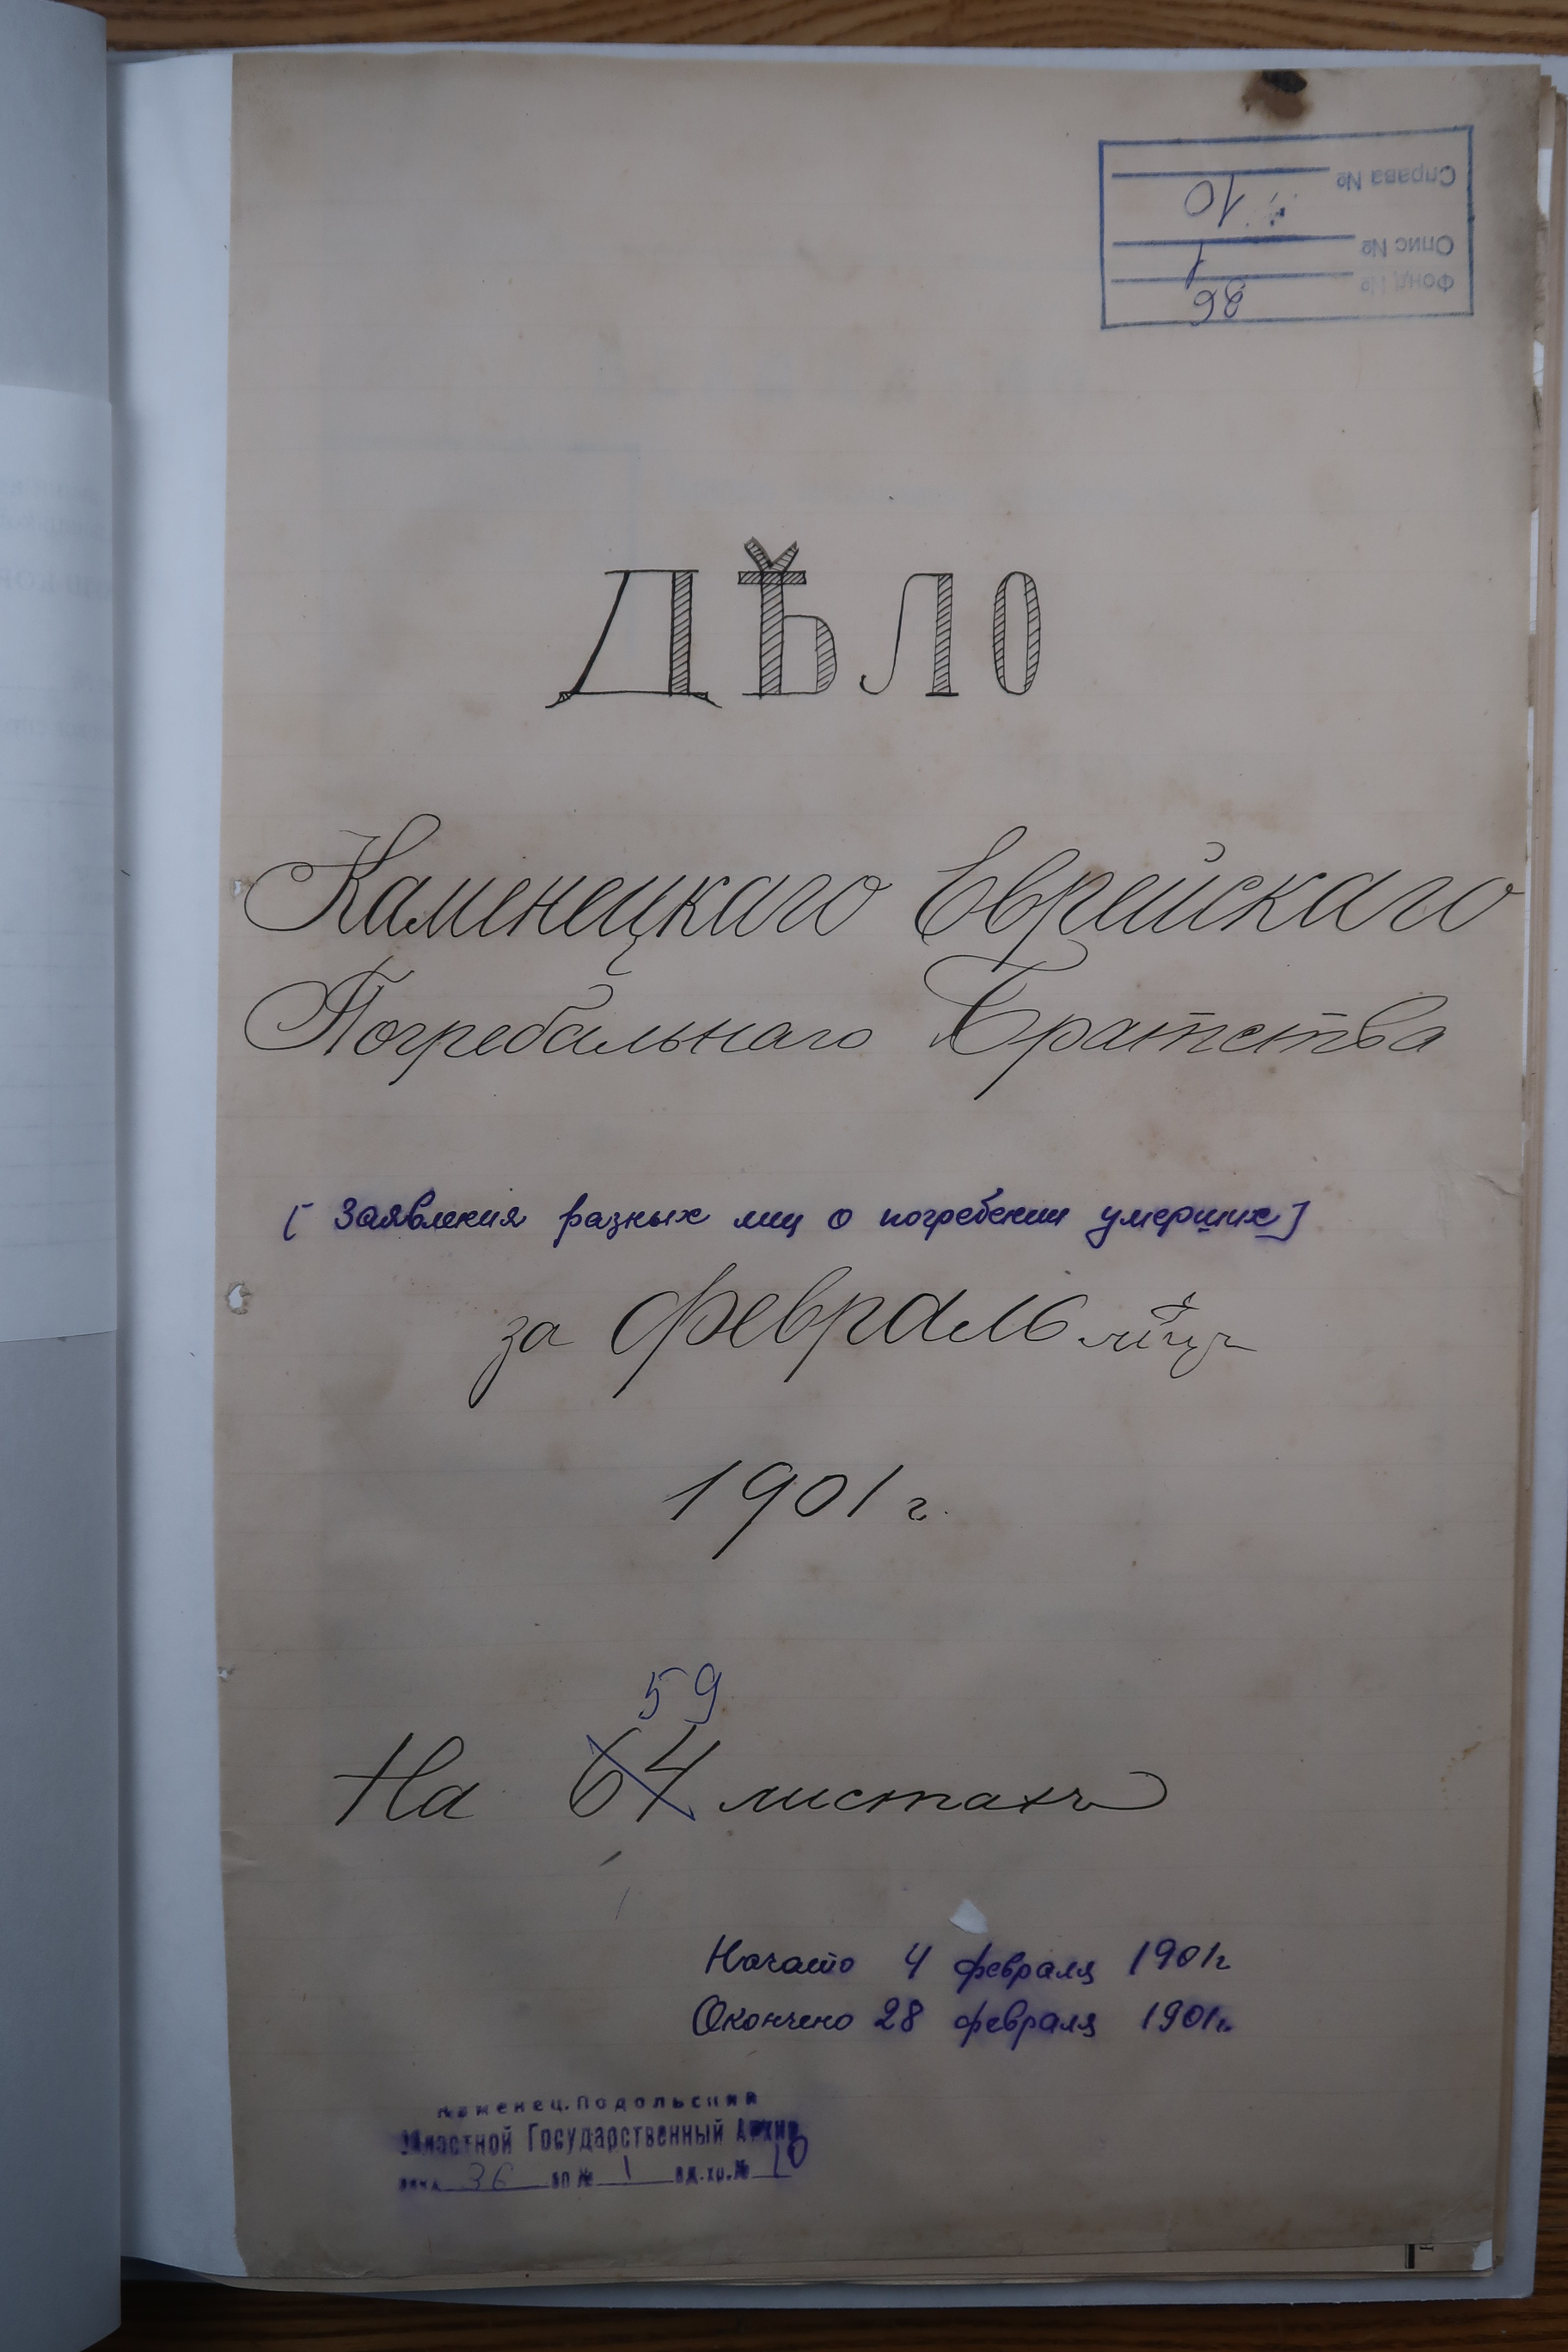 Справа № 10
Опис № 1
Фонд № 36
ДѢЛО
Каменецкаго Еврейскаго
Погребальнаго Братства
[Заявления разных лиц о погребении умерших]
за Февраль мѣцъ
1901 г.
59
На 64 листахъ
Начато 4 февраля 1901г
Окончено 28 февраля 1901г.
Каменец.Подольский
Областной Государственный Архив
фонд 36 оп № 1 ед.хр.№ 10